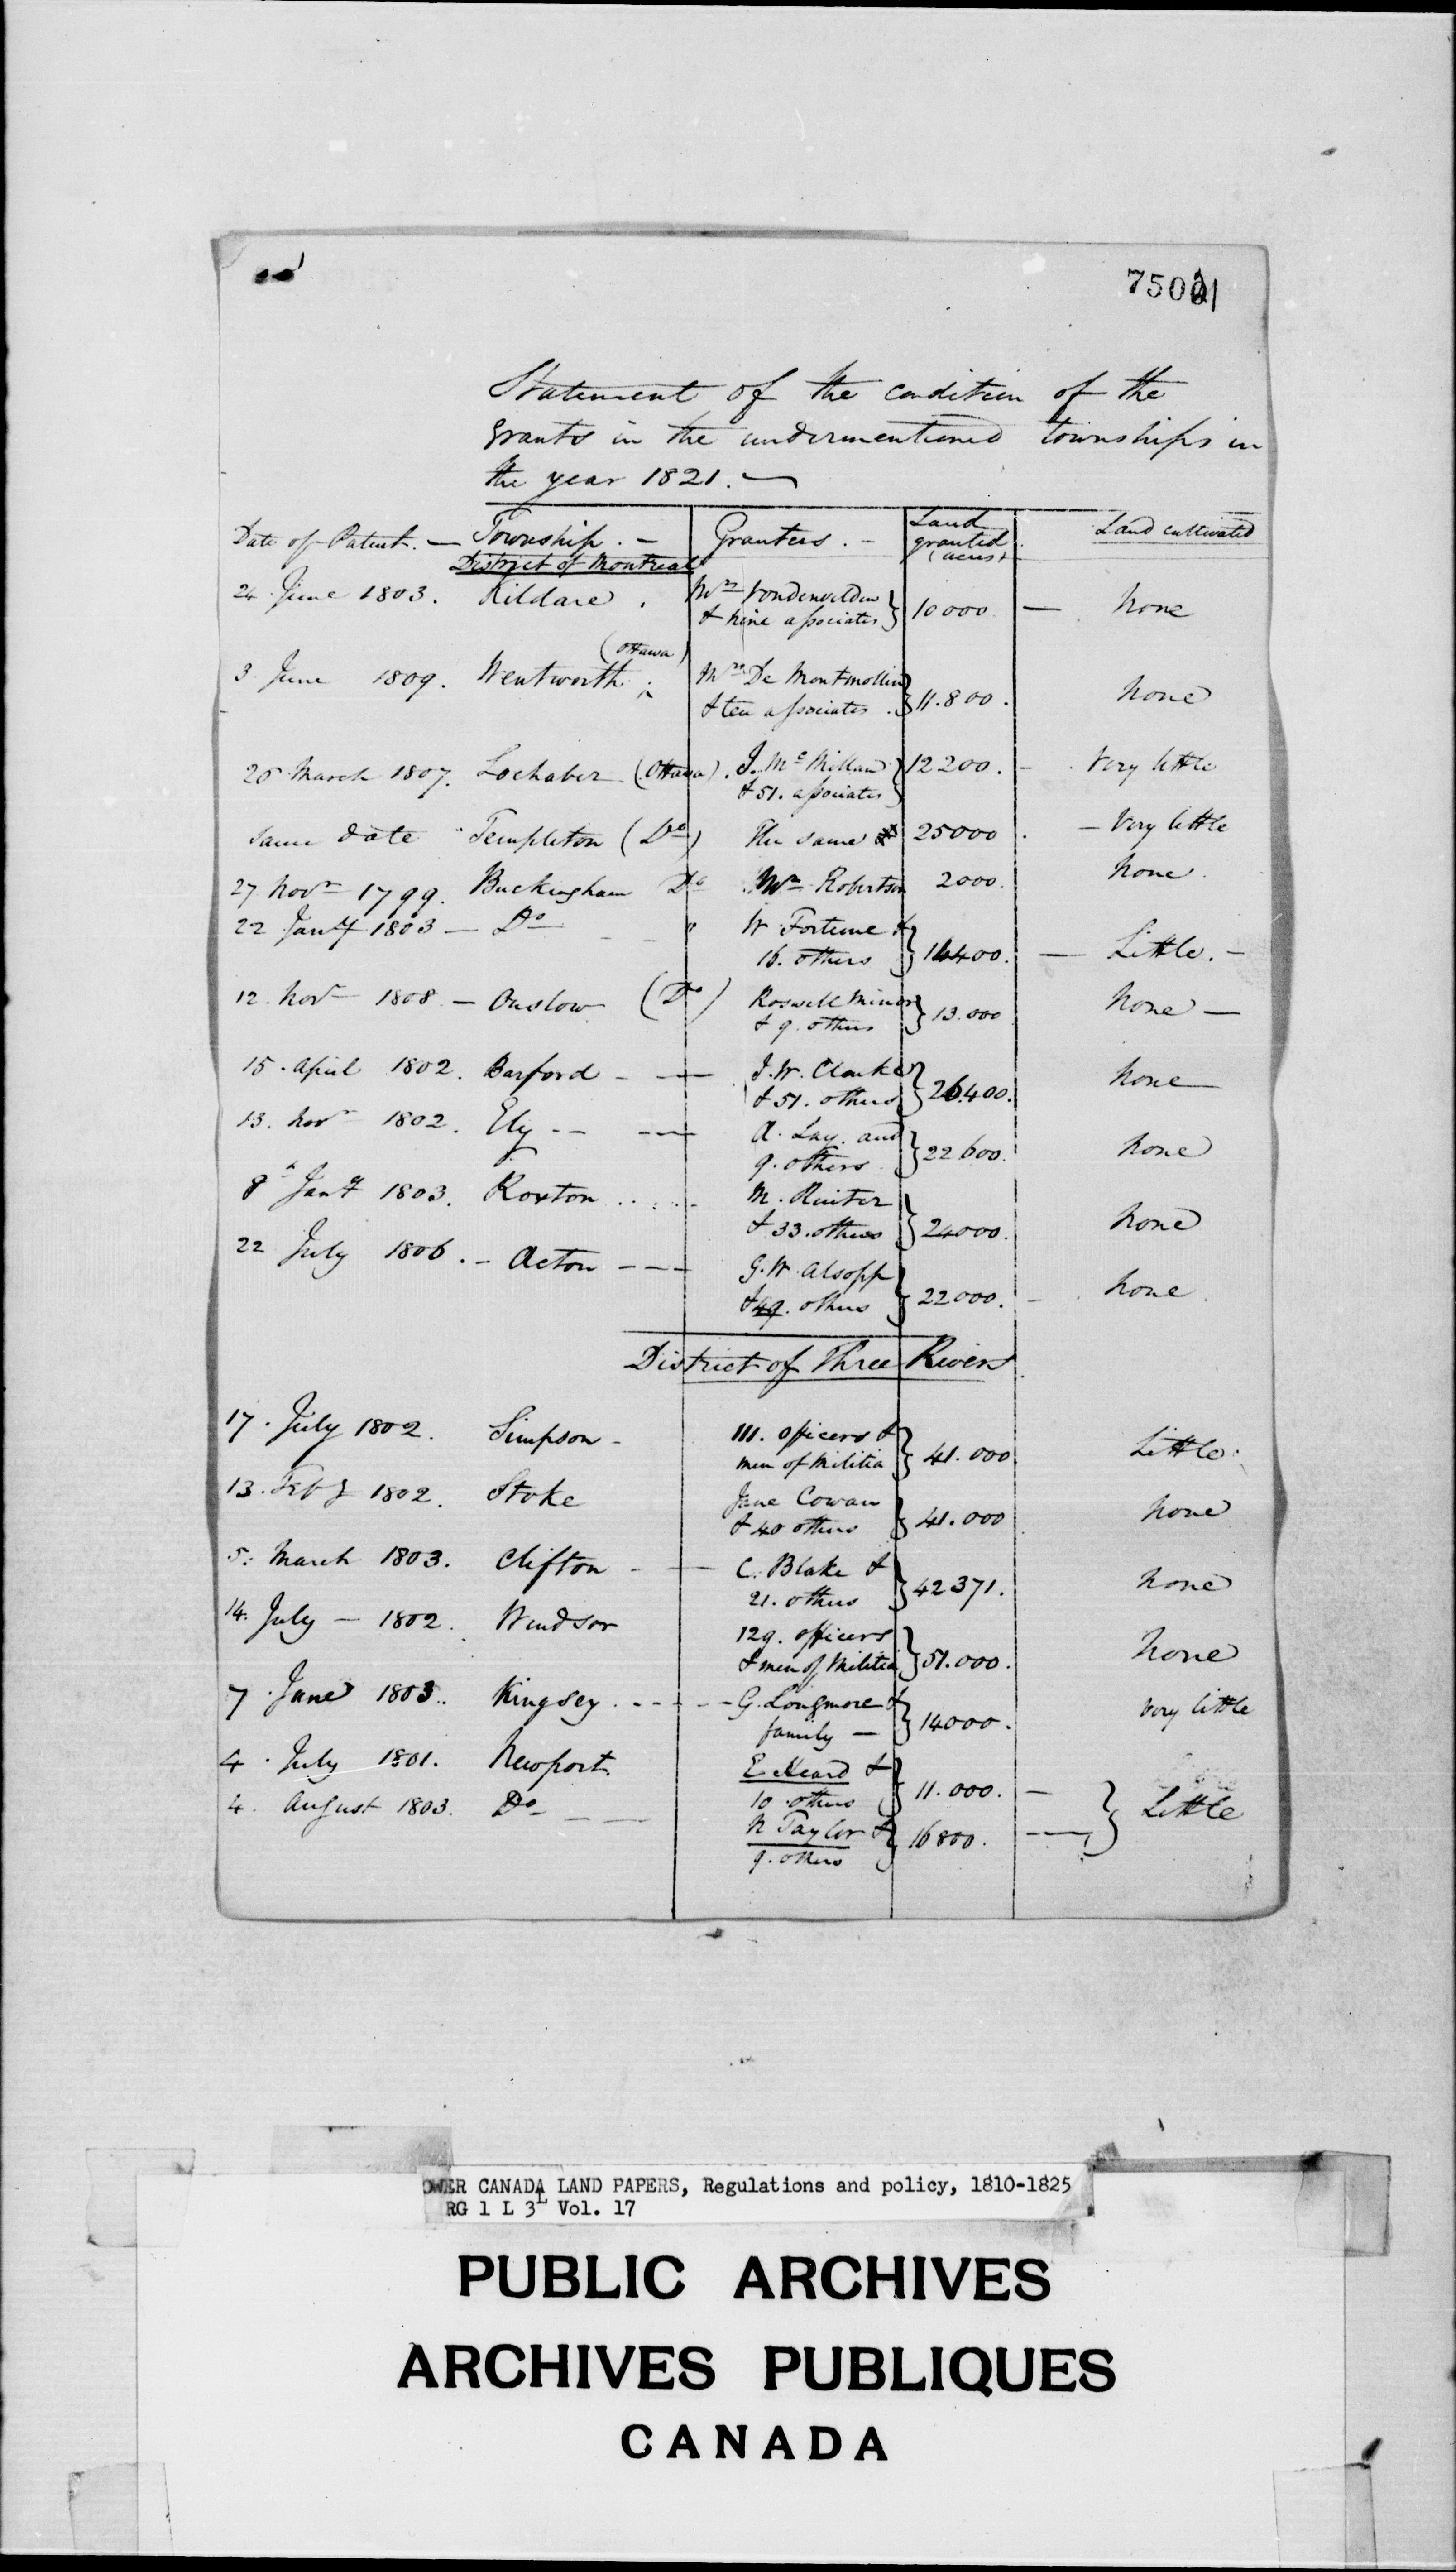 75001
Statement of the condition of the
grants in the undermentioned townships in
the year 1821. —
Date of Patent. — Township. — Grantees. — Land granted (acres) Land cultivated
District of Montreal
24 June 1803. Kildare. Wm Vondenvelden 10000 — None
& nine associates
(Ottawa)
3 June 1809. Wentworth. De Montmollin 11.800. None
& ten associates.
March 1807. Lochaber (Ottawa). J. McMillan 12200. — Very little
& 51. associates
Same date Templeton (Do) The same 25000. — Very little
27 Novr 1799. Buckingham Do Wm Robertson 2000. None.
22 Jany 1803 — Do " W. Fortune &
16. others 14400. — Little. —
12. Novr 1808 — Onslow (Do) Roswell Minor
& 9. others 13.000 None —
15. April 1802. Barford — J. W. Clarke
& 51. others 26.400. None
13. Novr 1802. Ely — A. Lay. and
9. others 22600. None
8 Jany 1803. Roxton .... M. Ruiter
& 33. others 24000. None
22 July 1806. — Acton — G. W. Alsopp
& 49. others 22000. — None.
District of Three Rivers
17. July 1802. Simpson — 111. officers &
men of Militia 41.000 Little.
13. Feby 1802. Stoke Jane Cowan
& 40 others 41.000 None
5. March 1803. Clifton — C. Blake &
21. others 42371. None
14. July — 1802. Windsor 129. officers
& men of Militia 51.000. None
7. June 1803. Kingsey. - - - G. Longmore &
family — 14000. Very little
4. July 1801. Newport. E. Heard &
10 others 11.000. —
4. August 1803. Do — N Taylor & 16800. — Little
9. others
OWER CANADA LAND PAPERS, Regulations and policy, 1810-1825
RG 1 L 3L Vol. 17
PUBLIC ARCHIVES
ARCHIVES PUBLIQUES
CANADA